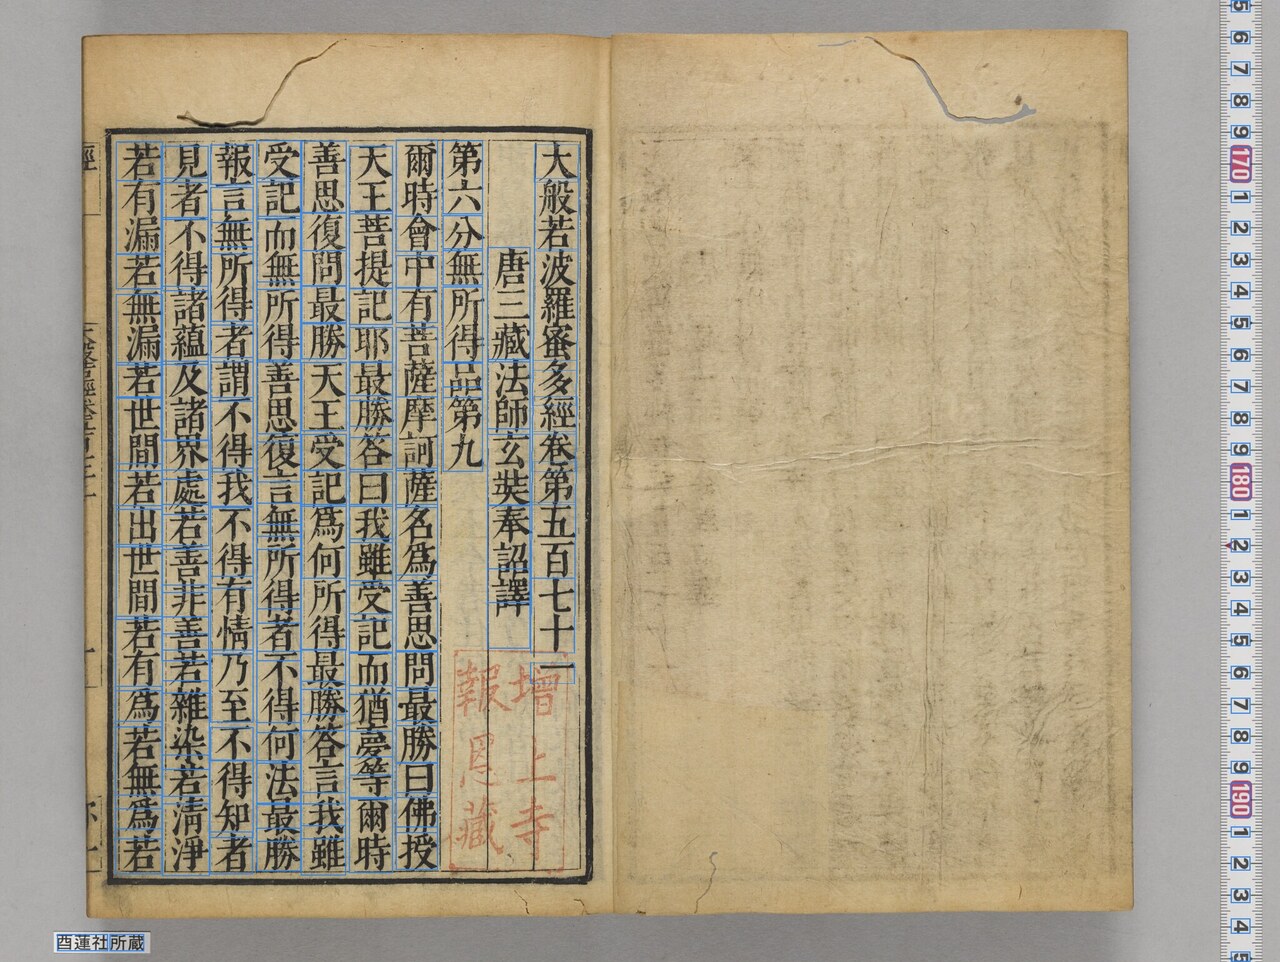 大般若波羅蜜多經卷第五百七十二
唐三藏法師玄奘奉詔譯
第六分無所得品第九
爾時會中有菩薩摩訶薩名爲善思問最勝曰佛授
天王菩提記耶最勝答曰我雖受記而猶夢等爾時
善思復問最勝天王受記爲何所得最勝答言我雖
受記而無所得善思復言無所得者不得何法最勝
報言無所得者謂不得我不得有情乃至不得知者
見者不得諸蘊及諸界處若善非善若雜染若清淨
若有漏若無漏若世間若出世間若有爲若無爲若
增上寺
報恩藏
酉蓮社所蔵
5 6 7 8 9 170 1 2 3 4 5 6 7 8 9 180 1 2 3 4 5 6 7 8 9 190 1 2 3 4 5